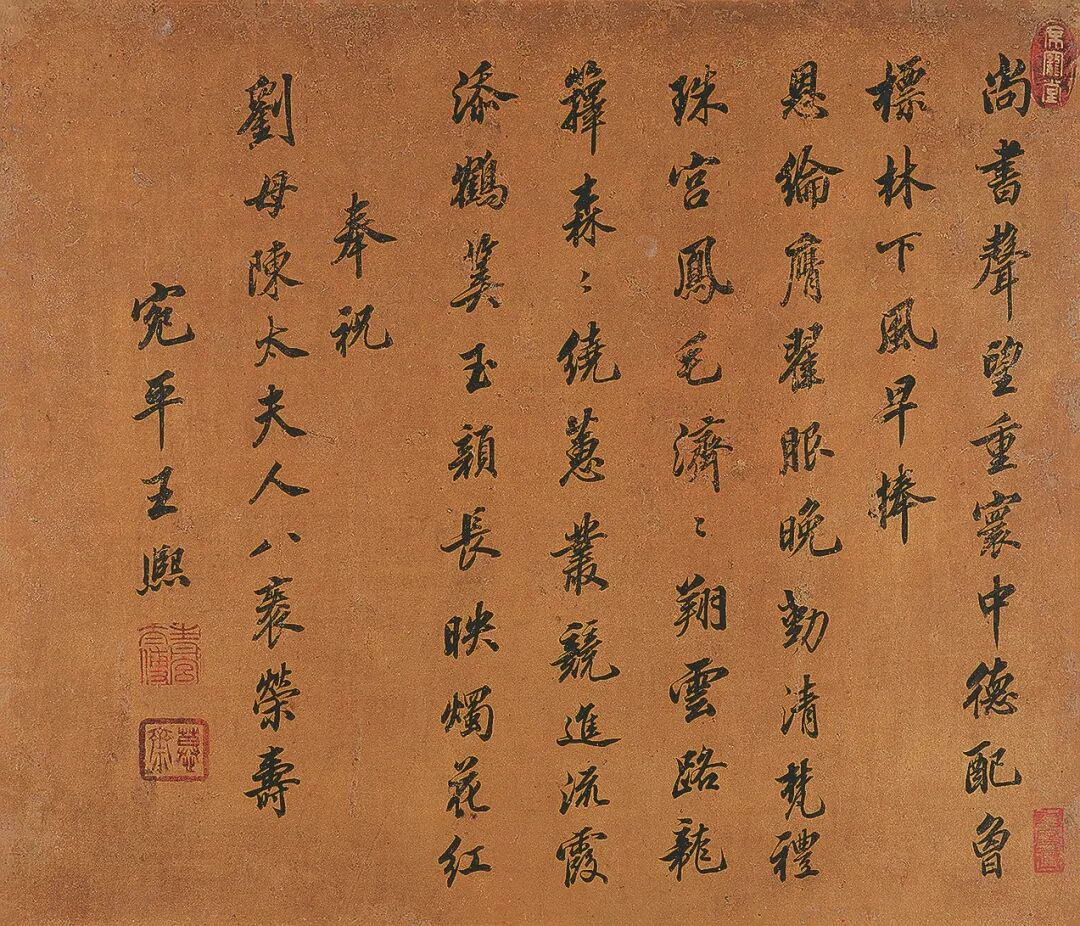 尚書聲望重寰中德配曾
標林下風早捧
恩綸膺翟服晚勤清梵禮
珠宮鳳毛濟〻翔雲路龍
籜森〻繞蕙叢競進流霞
添鶴筭玉顏長映燭花紅
奉祝
劉母陳太夫人八袠榮壽
宛平王熙
青宮太傅
慕齋